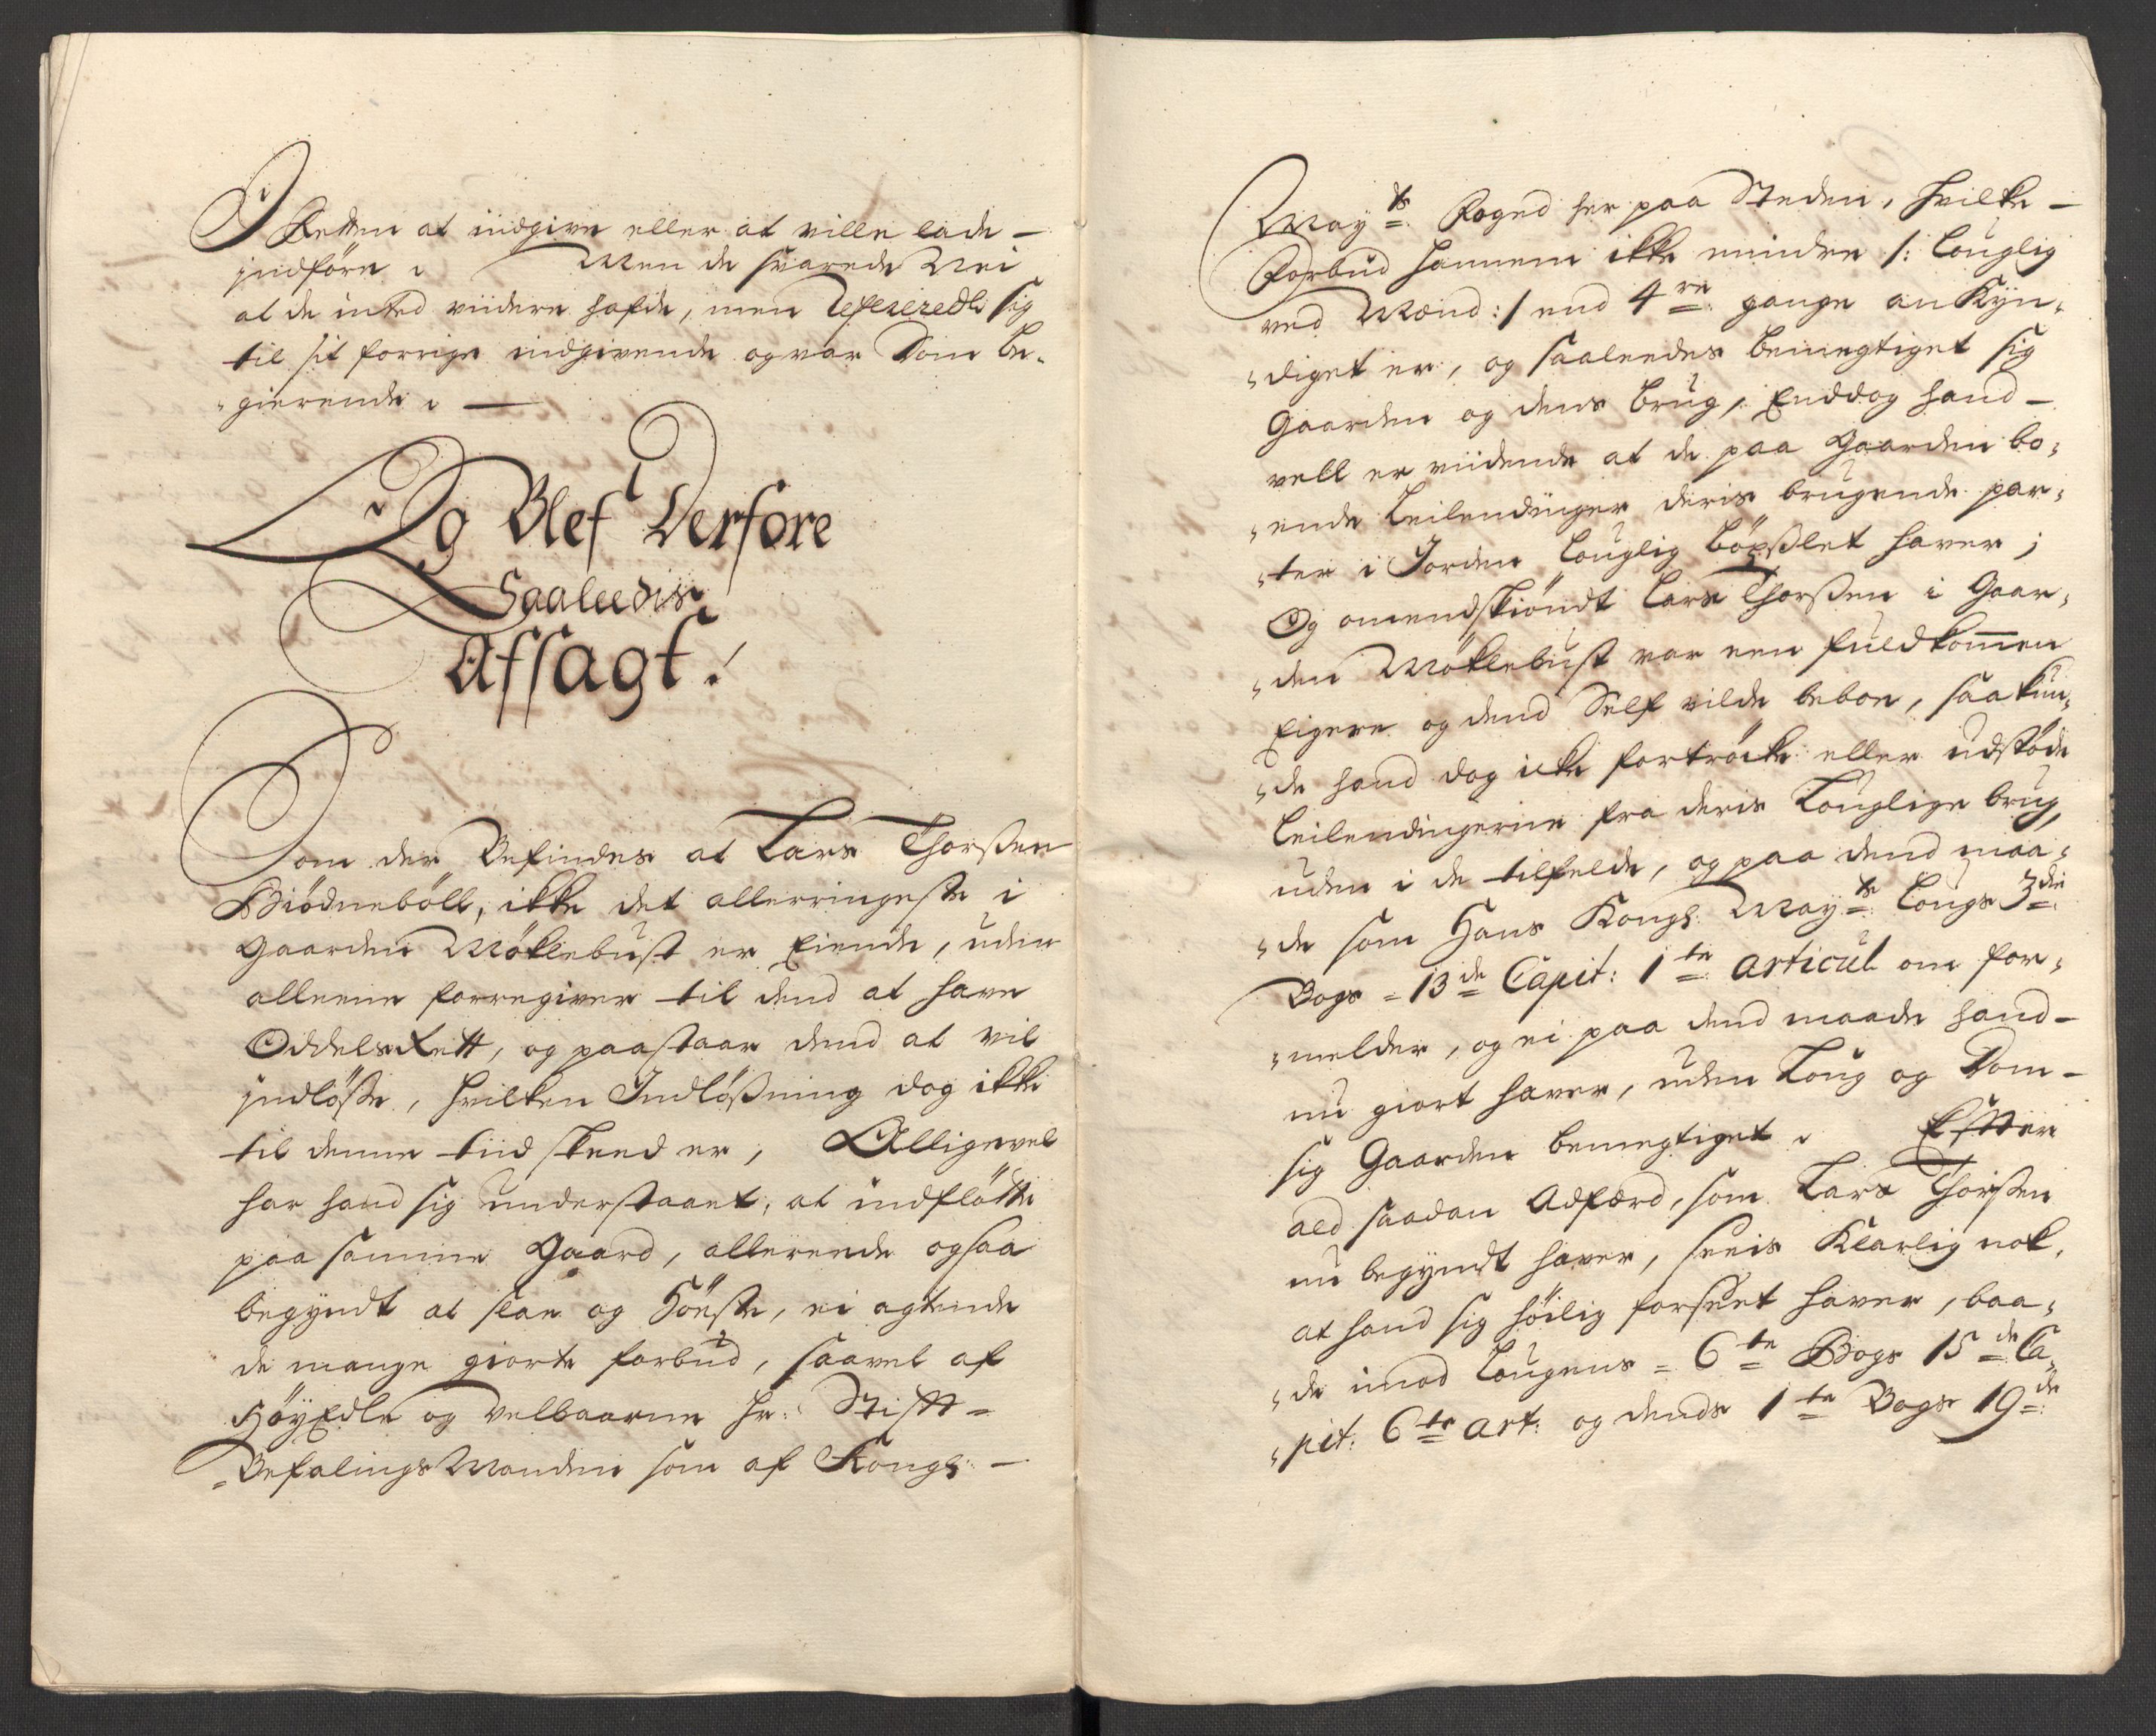 I Retten at indgive eller at ville lade –
jndföre. Men de svarede Nei
at de inted viidere hafde, men Refereredte sig
til sit forrige indgivende og var Dom be-
gierende. —
Og Blef Derfore
Saaleedis
Afsagt!
Som der Befindes at Lars Thorßen
Biödneböll, ikke det allerringeste i
Gaarden Möklebust er Eiende, uden
alleene forregiver til dend at have
OddelsRett, og paastaar dend at vil
jndlöße, hvilken Indlößning dog ikke
til denne tiid skeed er, Alligevel
har hand sig understaaet, at indflötte
paa samme Gaard, allereede ogsaa
begyndt at slae og Höeste, ei agtende
de mange giorte forbud, saavel af
HöyEdle og Velbaarne Hr: Stift-
BefalingsManden som af Kongl: –
May.ts Foged her paa Steden, hvilke –
Forbud hannem ikke mindre /: Louglig
ved Mænd :/ end 4re gange an Kyn-
diget er, og saaleedes bemegtiget sig
Gaarden og dens brug, Enddog hand –
vell er viidende at de paa Gaarden bo-
ende Leilendinger deris brugende par-
ter i Jorden Louglig böxßlet haver;
Og omendskiöndt Lars Thorßen i Gaar-
den Möklebust var een fuldkommen
Eigere og dend Self vilde beboe, saa kun-
de hand dog icke fortröcke eller udstöde
Leilendingerne fra deris Louglige brug,
uden i de tilfelde, og paa dend maa-
de som Hans Kongl: May.ts Lougs 3die
Bogs 13de Capit: 1te Articul om for-
melder, og ei paa dend maade hand –
nu giort haver, uden Loug og Dom –
sig Gaarden bemegtiget. Efter
ald saadan Adfærd, som Lars Thorßen
nu begyndt haver, sees Klarlig nok,
at hand sig höilig forseet haver, baa-
de imod Lougens 6te Bogs 15de Ca-
pit: 6te Art: og dends 1te Bogs 19de